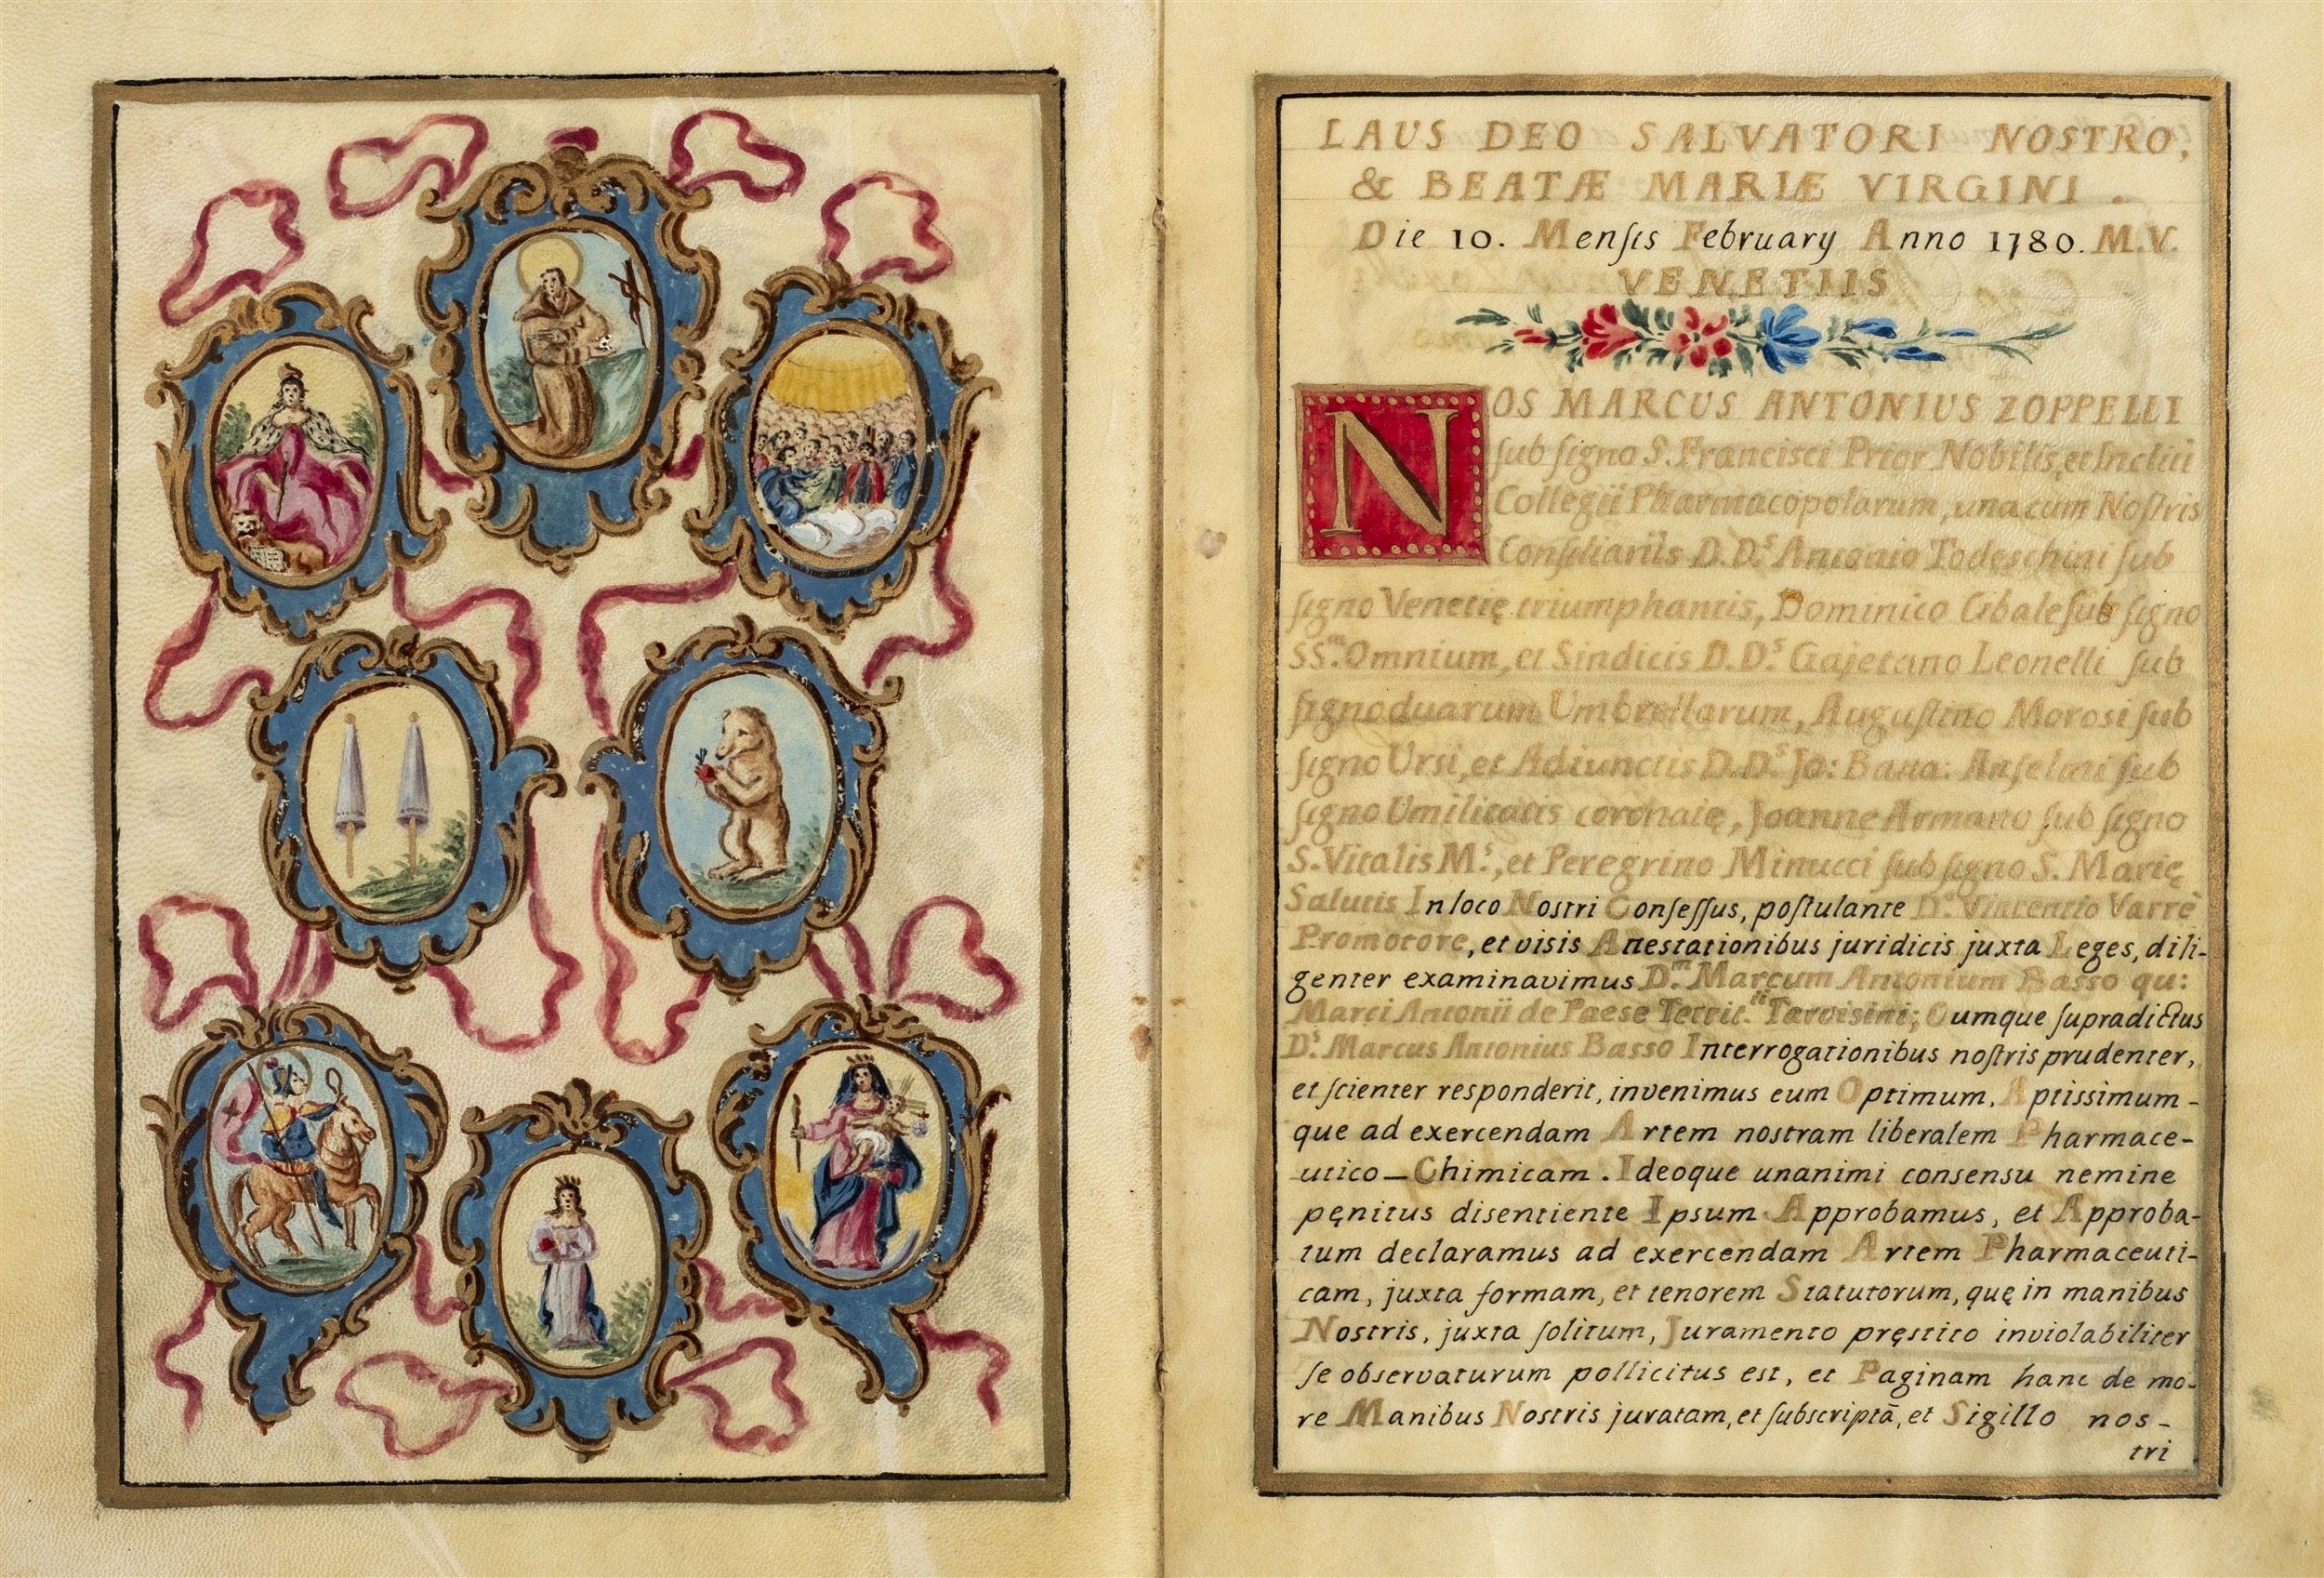 LAUS DEO SALVATORI NOSTRO,
& BEATÆ MARIÆ VIRGINI.
Die 10. Mensis February Anno 1780. M.V.
VENETIIS
NOS MARCUS ANTONIUS ZOPPELLI
sub signo S. Francisci Prior Nobilis, et Incliti
Collegii Pharmacopolarum, una cum Nostris
Consiliariis D.Ds. Antonio Todeschini sub
signo Venetię triumphantis, Dominico Cibale sub signo
SSm. Omnium, et Sindicis D.Ds. Gajetano Leonelli sub
signo duarum Umbrellarum, Augustino Morosi sub
signo Ursi, et Adiunctis D.Ds. Jo: Batta: Anselmi sub
signo Umilitatis coronatę, Joanne Armano sub signo
S. Vitalis Ms., et Peregrino Minucci sub signo S. Marię
Salutis In loco Nostri Consessus, postulante Do. Vincentio Varrè
Promotore, et visis Attestationibus juridicis juxta Leges, dili-
genter examinavimus Dm. Marcum Antonium Basso qu:
Marci Antonii de Paese Territ.ii Tarvisini; Cumque supradictus
Ds. Marcus Antonius Basso Interrogationibus nostris prudenter,
et scienter responderit, invenimus eum Optimum, Aptissimum-
que ad exercendam Artem nostram liberalem Pharmace-
utico-Chimicam. Ideoque unanimi consensu nemine
pęnitus disentiente Ipsum Approbamus, et Approba-
tum declaramus ad exercendam Artem Pharmaceuti-
cam, juxta formam, et tenorem Statutorum, quę in manibus
Nostris, juxta solitum, Juramento pręstito inviolabiliter
se observaturum pollicitus est, et Paginam hanc de mo-
re Manibus Nostris juratam, et subscriptã, et Sigillo nos-
tri